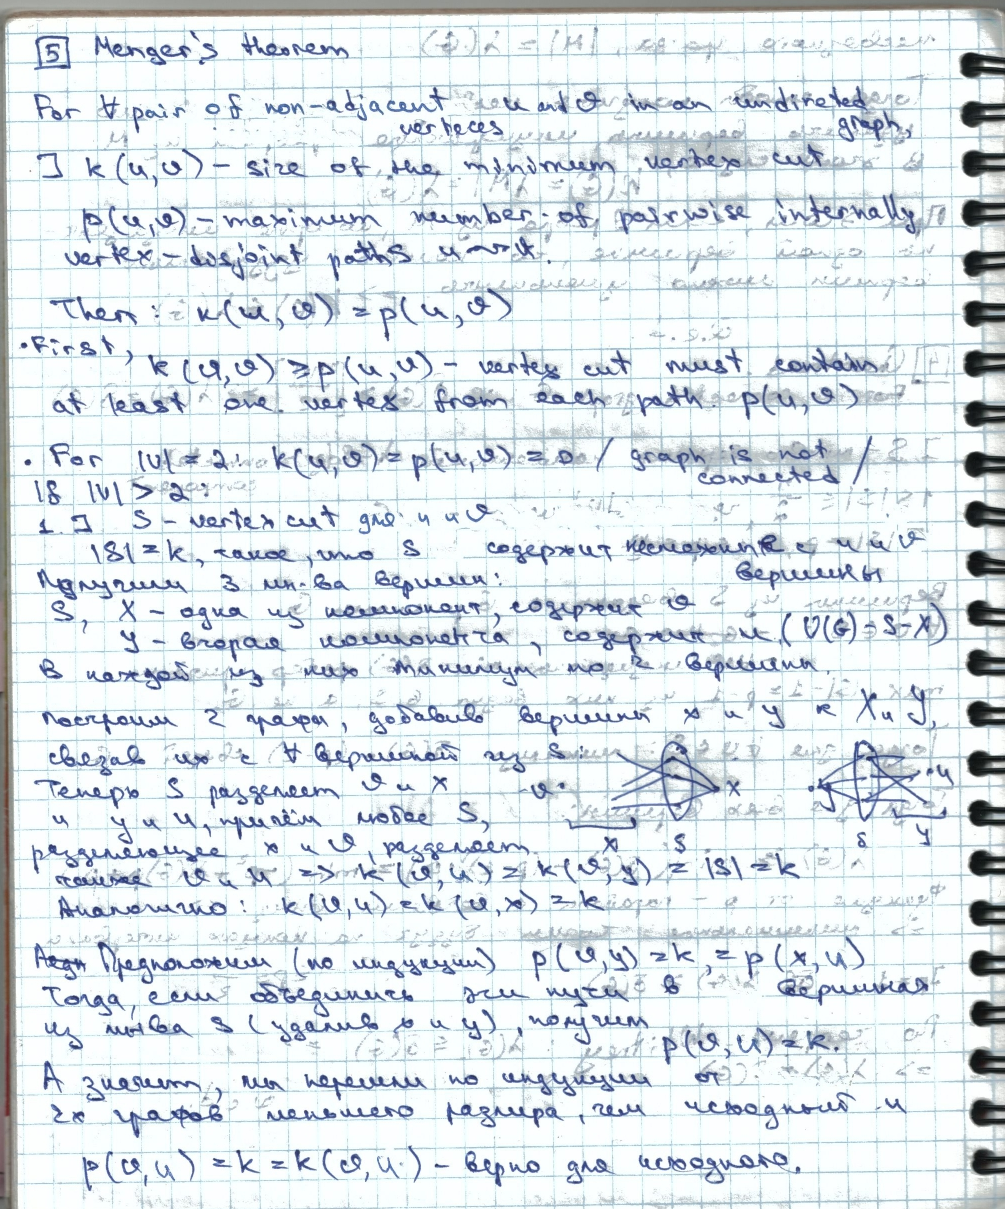 5 Menger's theorem
For ∀ pair of non-adjacent verteces u and v in an undirected graph,
∃ k(u,v) – size of the minimum vertex cut
p(u,v) – maximum number of pairwise internally
vertex-disjoint paths u ⇝ v.
Then: k(u,v) = p(u,v)
• First,
k(v,v) ≥ p(u,v) – vertex cut must contain
at least one vertex from each path p(u,v)
• For |V| = 2: k(u,v) = p(u,v) = 0 / graph is not connected /
If |V| > 2:
1. ] S – vertex cut для u и v
|S| = k, такое, что S содержит несмежные с u и v вершины
Получили 3 мн-ва вершин:
S, X – одна из компонент, содержит v
Y – вторая компонента, содержит u. (V(G) – S – X)
В каждой из них минимум по 2 вершины.
построим 2 графа, добавив вершины x и y к X и Y,
связав их с ∀ вершиной из S:
Теперь S разделяет v и x
и y и u, причём любое S,
разделяющее x и v, разделяет
также v и u => k(v,u) = k(v,y) = |S| = k
v X S x
y S Y u
Аналогично: k(v,u) = k(v,x) = k
Предположим (по индукции) p(v,y) = k, = p(x,u)
Тогда, если объединить эти пути в вершинах
из мн-ва S (удалив x и y), получим
p(v,u) = k.
А значит, мы перешли по индукции от
2х графов меньшего размера, чем исходный и
p(v,u) = k = k(v,u) – верно для исходного.